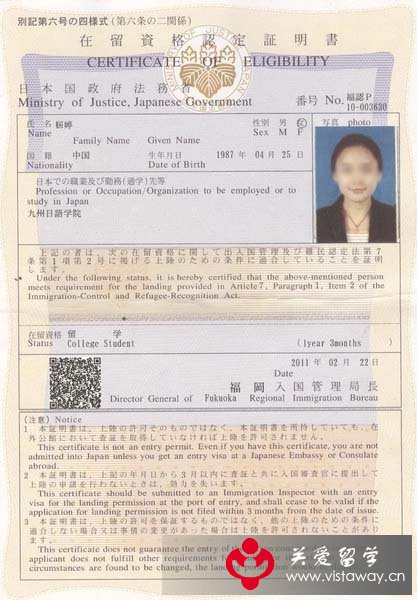 別記第六号の四様式(第六条の二関係)
在留資格認定証明書
CERTIFICATE OF ELIGIBILITY
日本国政府法務省
Ministry of Justice, Japanese Government
番号 No. 福認P
10-003630
氏名
Name
Family Name Given Name
性別 男 女
Sex M F
写真 photo
国籍 中国
Nationality
生年月日 1987 年 04 月 25 日
Date of Birth
日本での職業及び勤務(通学)先等
Profession or Occupation/Organization to be employed or to
study in Japan
九州日語学院
上記の者は、次の在留資格に関して出入国管理及び難民認定法第7
条第1項第2号に掲げる上陸のための条件に適合していることを証明
します。
Under the following status, it is hereby certified that the above-mentioned person
meets requirement for the landing provided in Article 7, Paragraph 1, Item 2 of the
Immigration-Control and Refugee-Recognition Act.
在留資格 留 学
Status College Student (1year 3months)
2011 年 02 月 22 日
Date
福岡入国管理局長
Director General of Fukuoka Regional Immigration Bureau
(注意) Notice
1 本証明書は、上陸の許可そのものではなく、本証明書を所持していても、在
外公館において査証を取得していなければ上陸を許可されません。
This certificate is not an entry permit. Even if you have this certificate, you are not
admitted into Japan unless you get an entry visa at a Japanese Embassy or Consulate
abroad.
2 本証明書は、上記の年月日から3月以内に査証と共に入国審査官に提出して
上陸の申請を行わないときは、効力を失います。
This certificate should be submitted to an Immigration Inspector with an entry
visa for the landing permission at the port of entry, and shall cease to be valid if the
application for landing permission is not filed within 3 months from the date of issue.
3 本証明書は、上陸の許可を保証するものではなく、他の上陸のための条件に
適合しない場合又は事情の変更があった場合は上陸を許可されないことがあり
ます。
This certificate does not guarantee the entry of the person
applicant does not fulfill other requirements for
circumstances are found to be changed, the landing
关爱留学
www.vistaway.cn